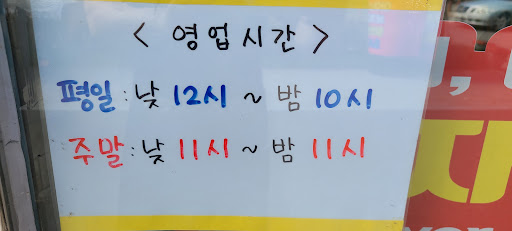 < 영업시간 >
평일 : 낮 12시 ~ 밤 10시
주말 : 낮 11시 ~ 밤 11시